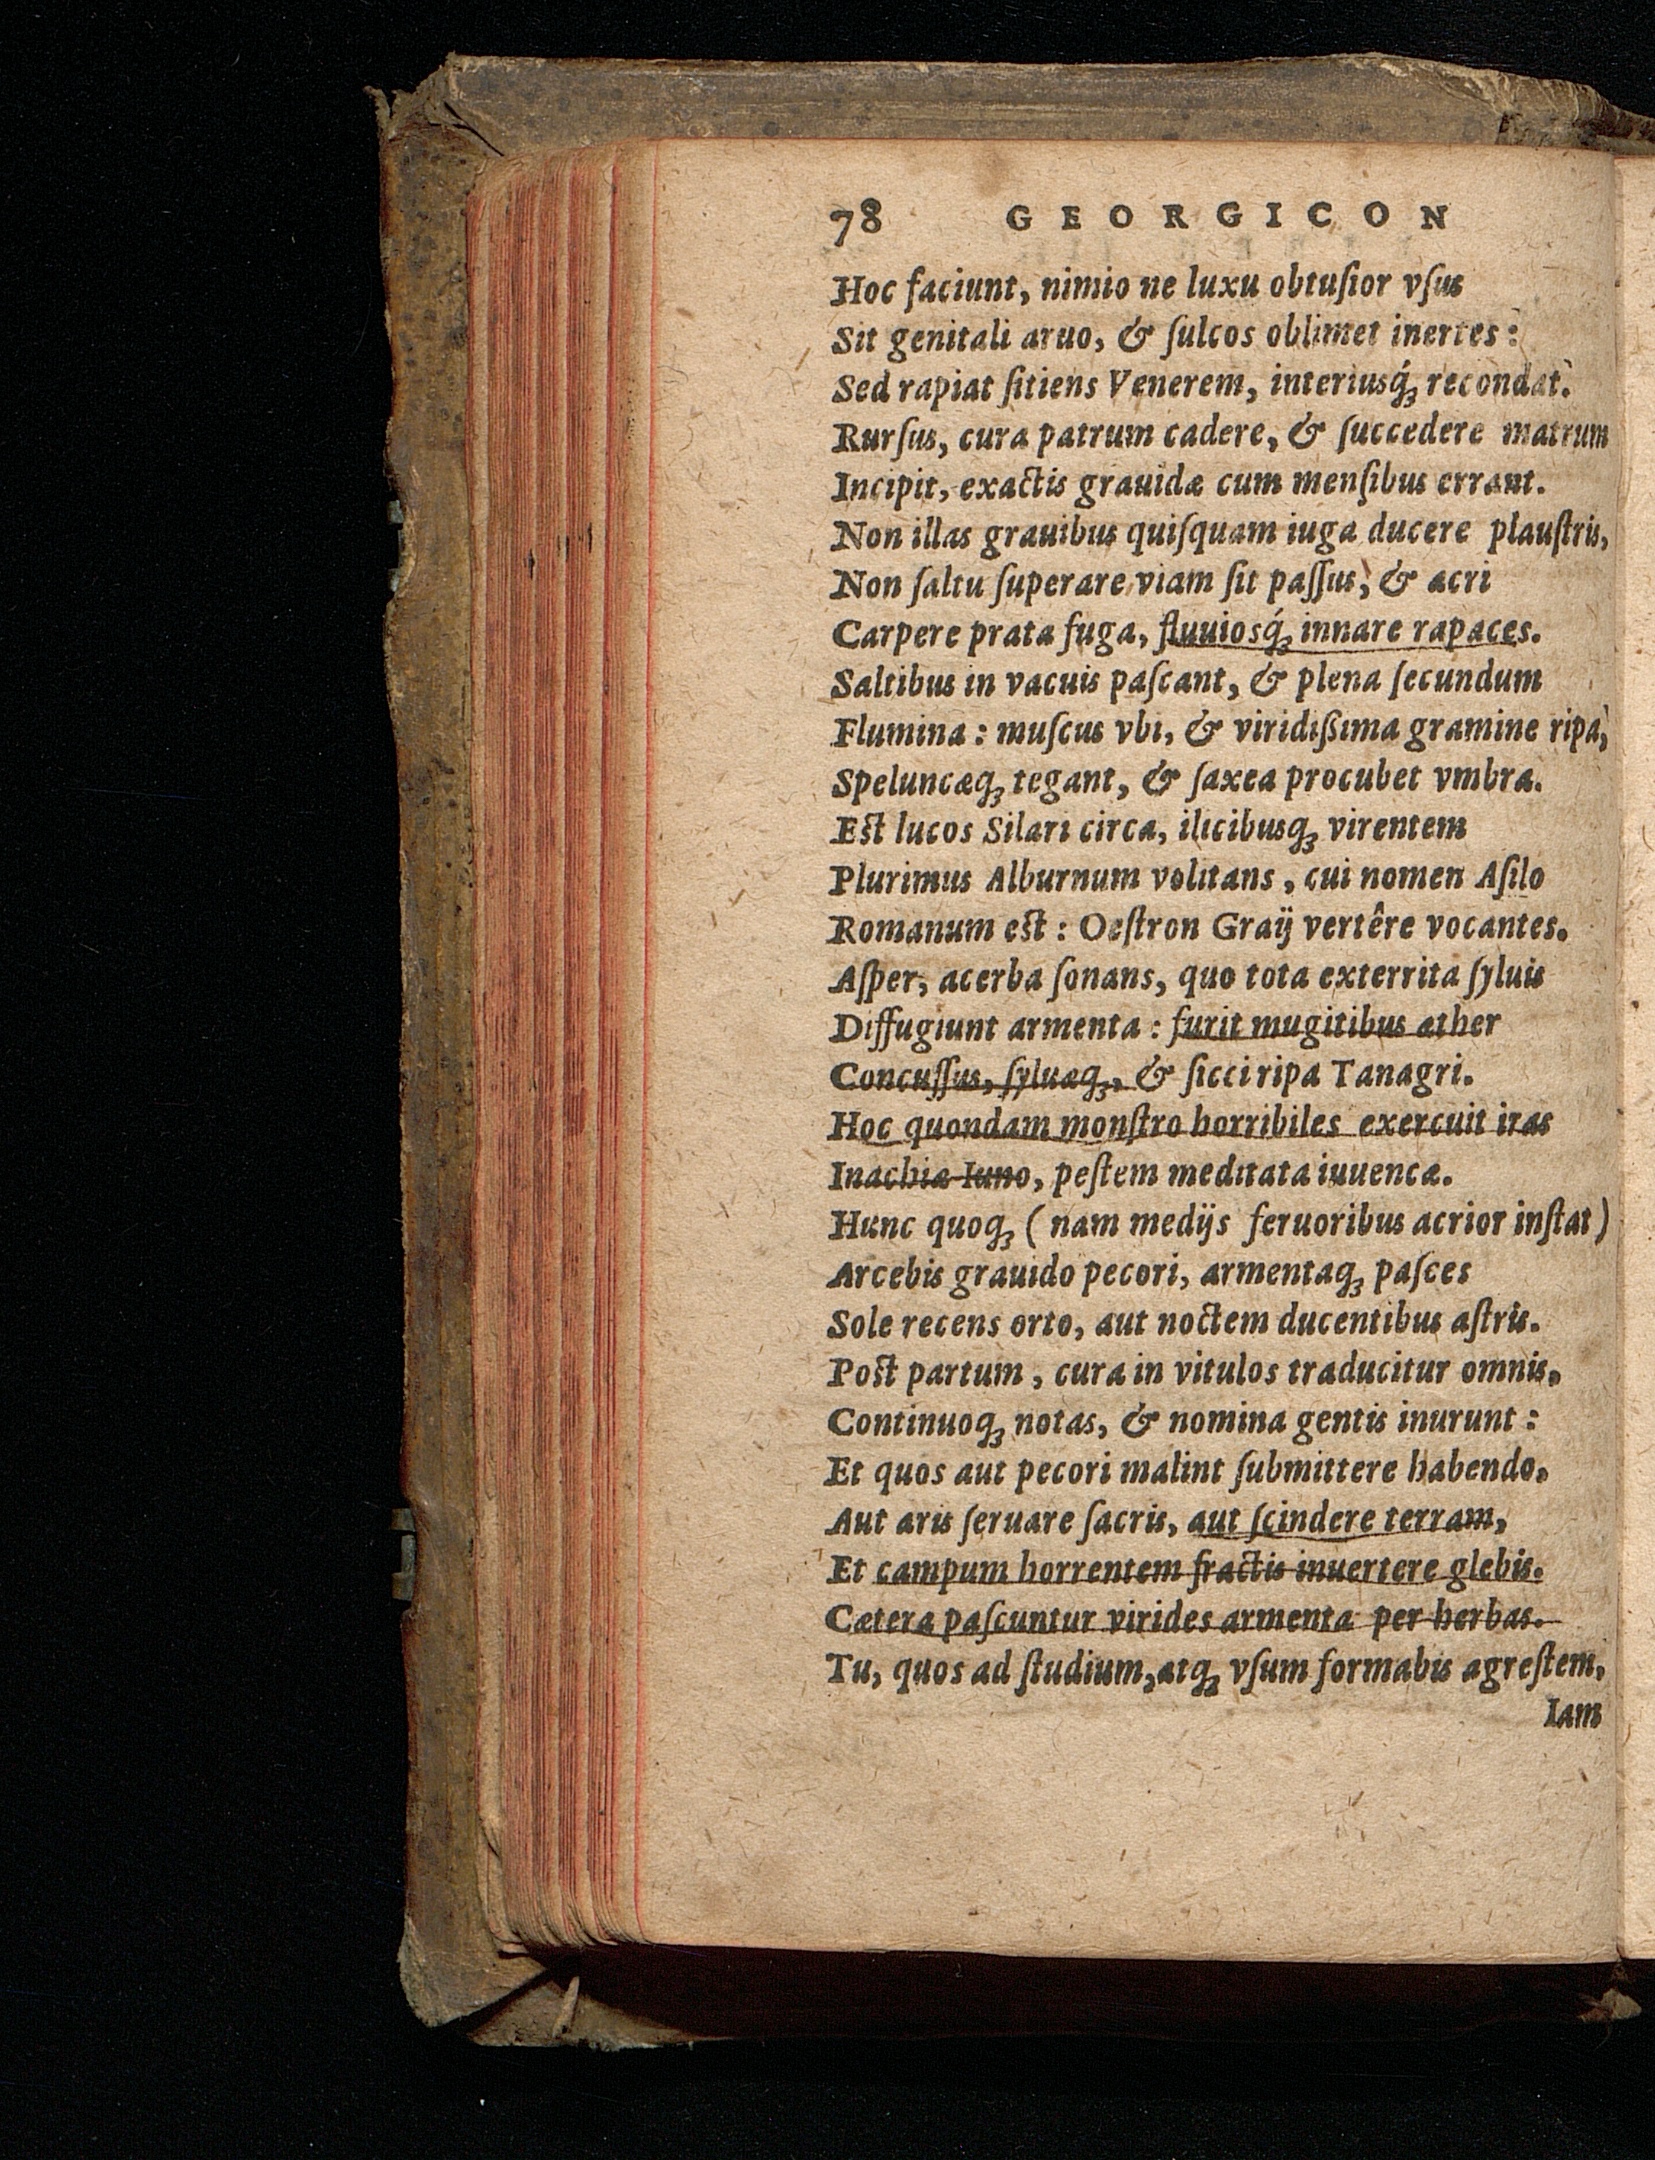 78 GEORGICON
Hoc faciunt, nimio ne luxu obtuſior vſus
Sit genitali aruo, & ſulcos oblimet inertes:
Sed rapiat ſitiens Venerem, interiusq́ꝫ recondat.
Rurſus, cura patrum cadere, & ſuccedere matrum
Incipit, exactis grauidæ cum menſibus errant.
Non illas grauibus quiſquam iuga ducere plauſtris,
Non ſaltu ſuperare viam ſit paſſus, & acri
Carpere prata fuga, fluuiosq́ꝫ innare rapaces.
Saltibus in vacuis paſcant, & plena ſecundum
Flumina: muſcus vbi, & viridißima gramine ripa,
Speluncæqꝫ tegant, & ſaxea procubet vmbra.
Est lucos Silari circa, ilicibusqꝫ virentem
Plurimus Alburnum volitans, cui nomen Aſilo
Romanum est: Oeſtron Graij vertêre vocantes.
Aſper, acerba ſonans, quo tota exterrita ſyluis
Diffugiunt armenta: furit mugitibus æther
Concuſſus, ſyluæqꝫ, & ſicci ripa Tanagri.
Hoc quondam monſtro horribiles exercuit iras
Inachiæ Iuno, peſtem meditata iuuencæ.
Hunc quoqꝫ (nam medijs feruoribus acrior inſtat)
Arcebis grauido pecori, armentaqꝫ paſces
Sole recens orto, aut noctem ducentibus aſtris.
Post partum, cura in vitulos traducitur omnis,
Continuoqꝫ notas, & nomina gentis inurunt:
Et quos aut pecori malint ſubmittere habendo,
Aut aris ſeruare ſacris, aut ſcindere terram,
Et campum horrentem fractis inuertere glebis.
Cætera paſcuntur virides armenta per herbas.
Tu, quos ad ſtudium, atqꝫ vſum formabis agreſtem,
Iam